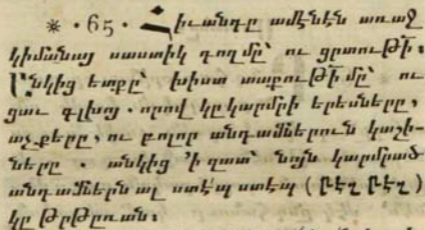 * · 65 · Հիւանդը ամէնէն առաջ
կիմանայ սաստիկ դող մը՝ ու ցրտութի՛։
Ընկից ետքը՝ խիստ տաքութի՛ մը՝ ու
ցաւ գլխոյ. որով կը կարմրի երեսները,
աչքերը, ու բոլոր անդամներուն կաշի-
ները. անկից ՚ի զատ՝ նոյն կարմրած
անդամներն ալ ստէպ ստէպ (բէզ բէզ)
կը թրթըռան։